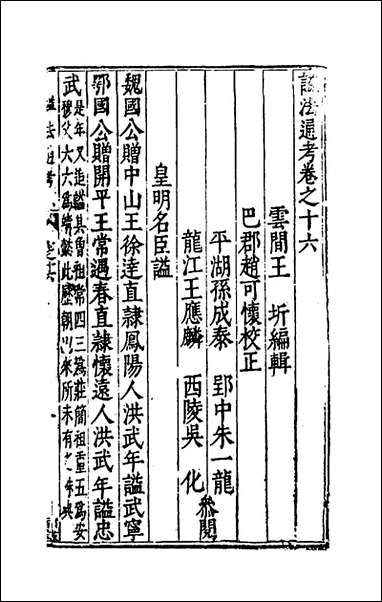 謚法通考卷之十六
雲間王　圻編輯
巴郡趙可懷校正
平湖孫成泰　郢中朱一龍
龍江王應麟　西陵吳　化
參閱
皇明名臣謚
魏國公贈中山王徐達直隸鳳陽人洪武年謚武寧
鄂國公贈開平王常遇春直隸懷遠人洪武年謚忠
武是年又追謚其曾祖常四三為莊簡祖重五為安
穆父六六為靖懿此歷朝以來所未有之殊典